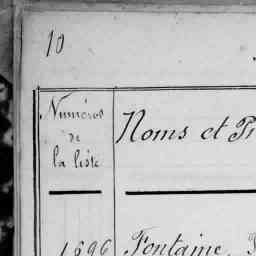 10
Numéros
de
la liste
Noms et Pr
1696 Fontaine,